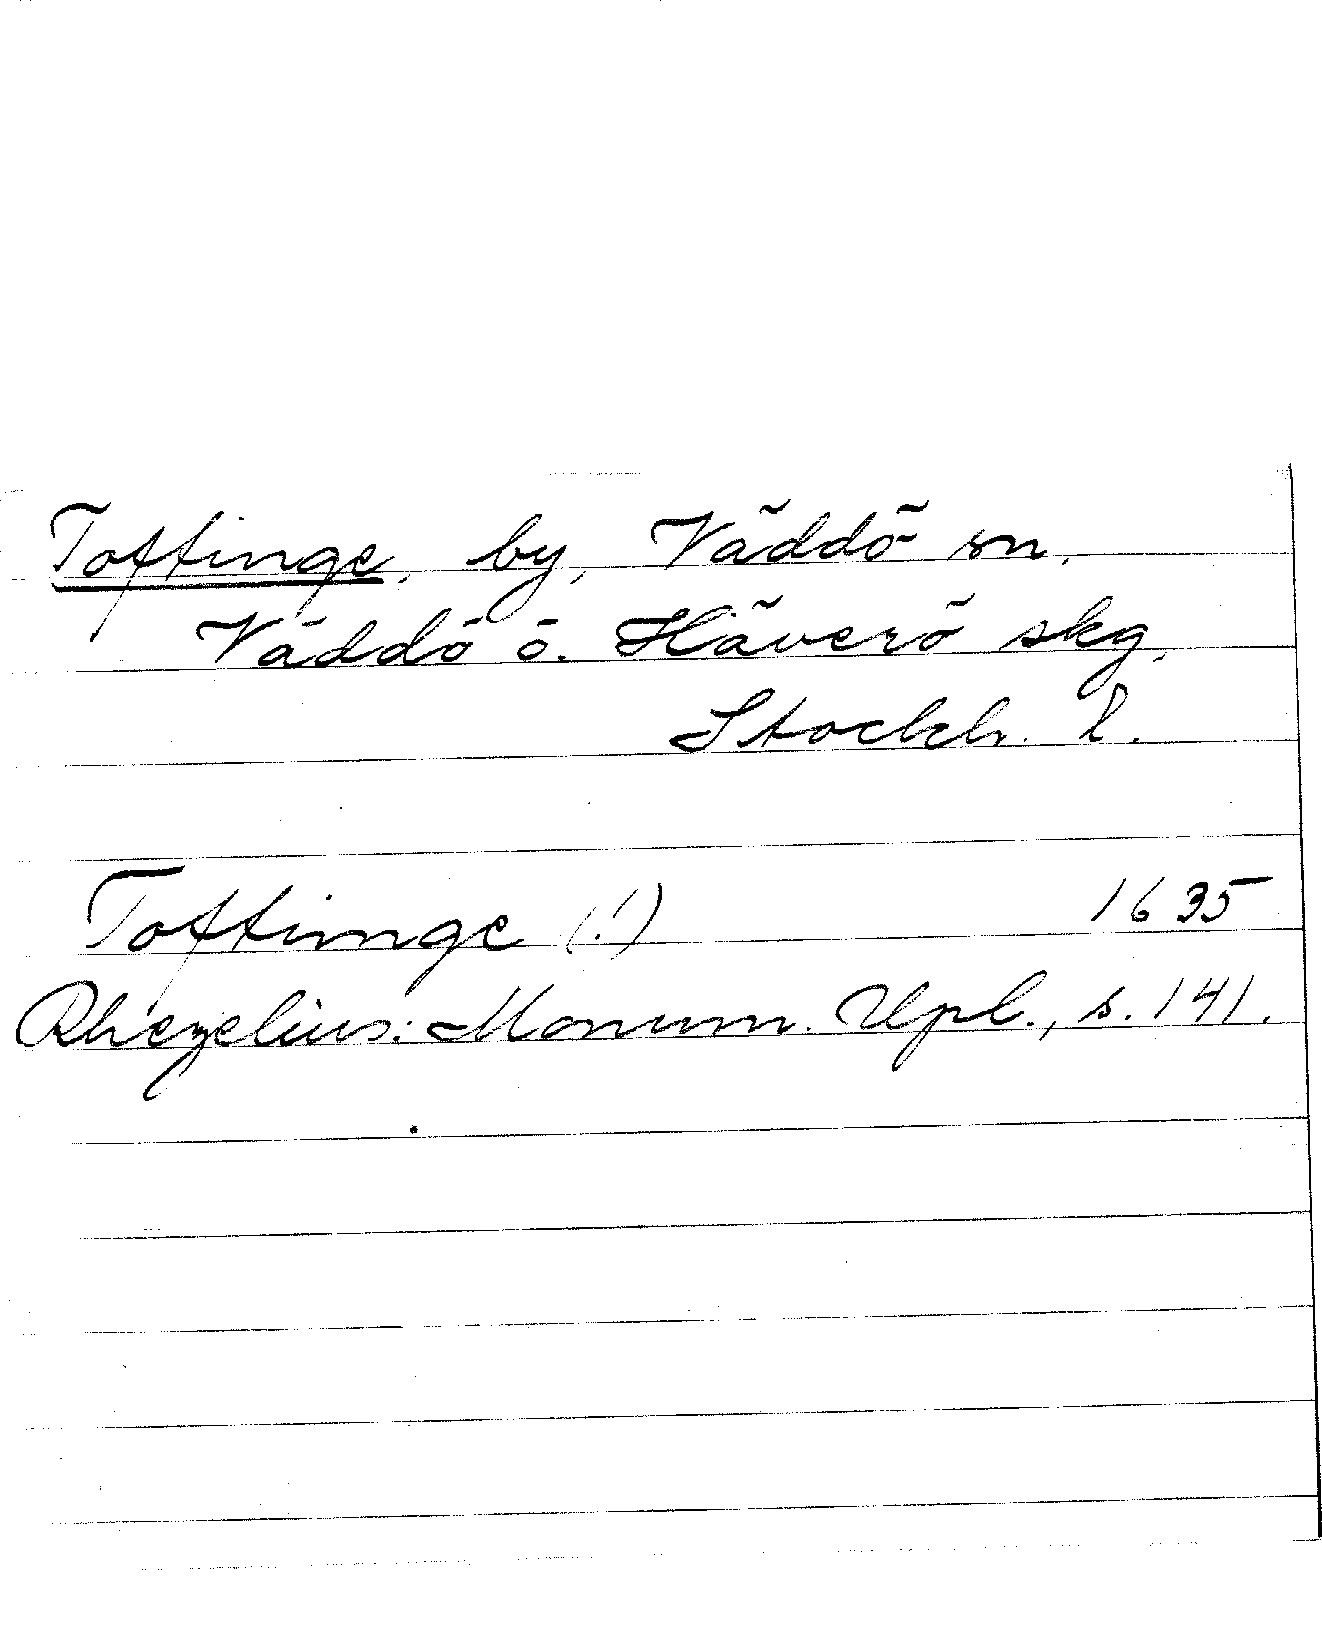 Toftinge, by, Väddö sn,
Väddö o. Häverö skg,
Stockh. l.
Toftimge (!) 1635
Rhezelius: Monum. Upl., s. 141.